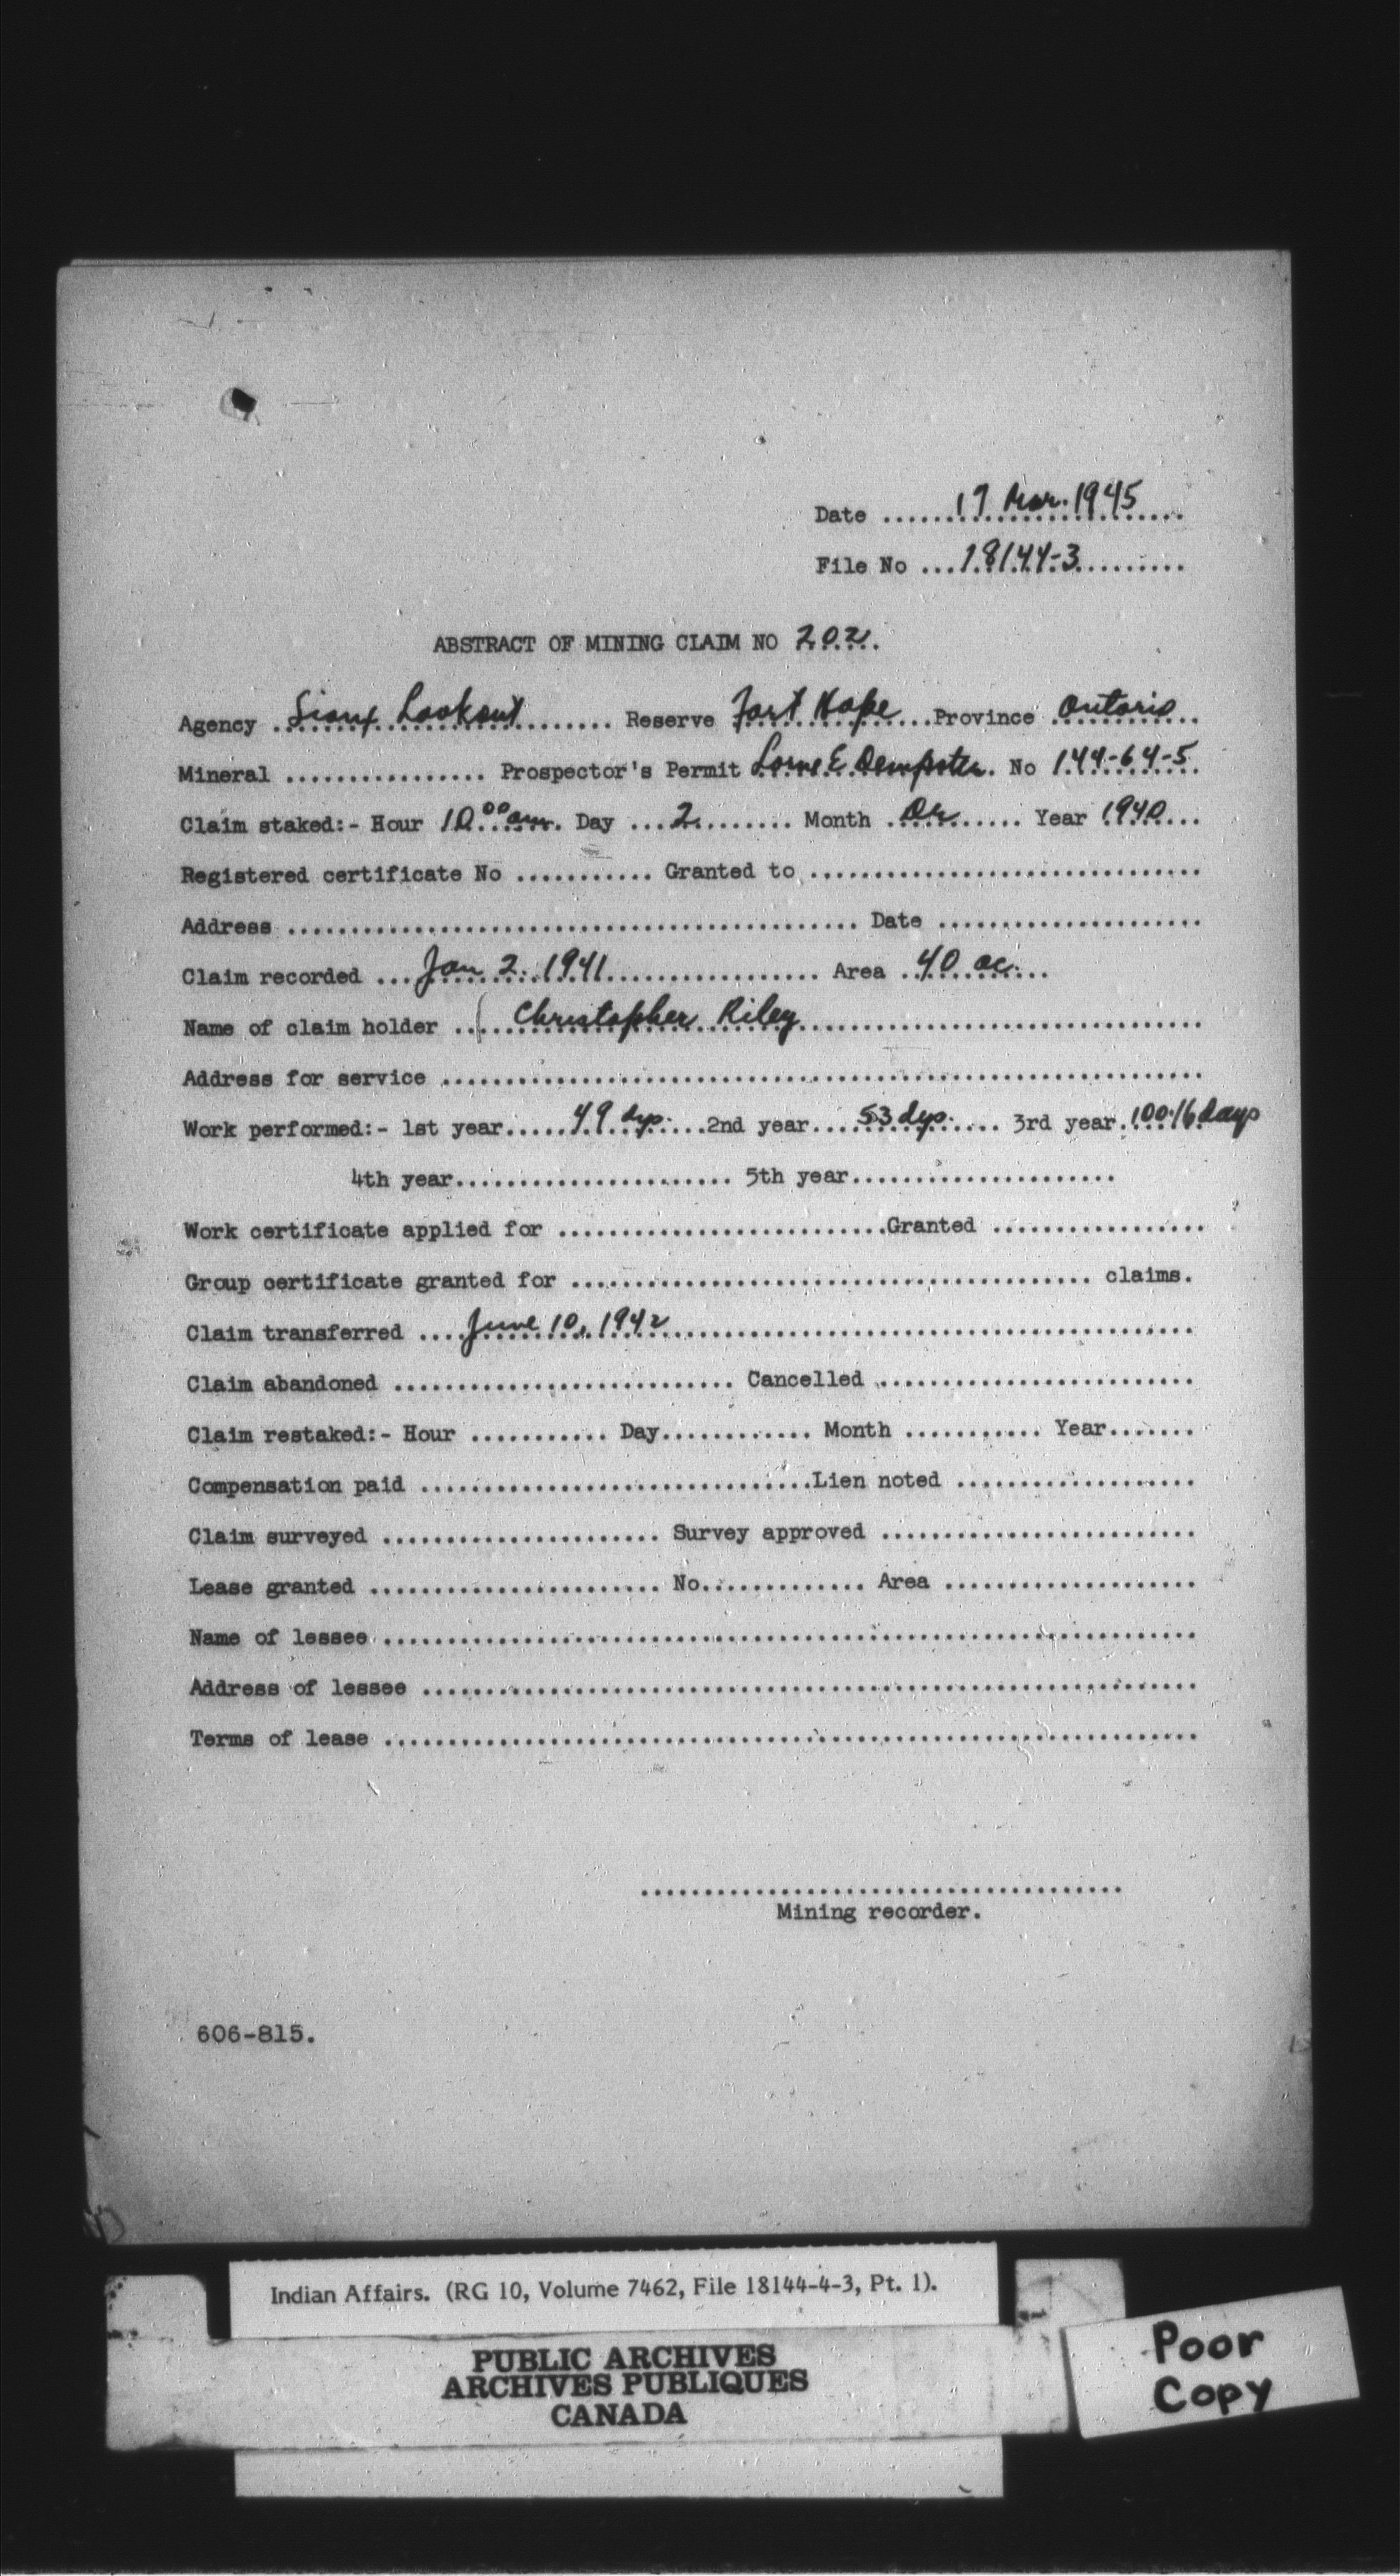 Date ......17 Mar. 1945......
File No ...18144-3.........
ABSTRACT OF MINING CLAIM NO 202.
Agency ..Sioux Lookout....... Reserve Fort Hope...Province Ontario..
Mineral ................ Prospector's Permit Lorne E Dempster. No 144-64-5
Claim staked:- Hour 10.00 am. Day ...2........ Month ........ Year 1940...
Registered certificate No ........... Granted to ...............................
Address ............................................. Date .....................
Claim recorded ...Jan 2. 1941................. Area ..40 ac....
Name of claim holder ..( Christopher Riley................................
Address for service ............................................................
Work performed:- 1st year.....49 dys....2nd year....53 dys..... 3rd year.100.16 days
4th year...................... 5th year.....................
Work certificate applied for ..........................Granted .................
Group certificate granted for ......................................... claims.
Claim transferred ....June 10, 1942..........................................
Claim abandoned ........................... Cancelled .........................
Claim restaked:- Hour ........... Day............ Month ........... Year.......
Compensation paid ...............................Lien noted ...................
Claim surveyed ...................... Survey approved .........................
Lease granted ....................... No............. Area ....................
Name of lessee ................................................................
Address of lessee .............................................................
Terms of lease ................................................................
......................................
Mining recorder.
606-815.
Indian Affairs. (RG 10, Volume 7462, File 18144-4-3, Pt. 1).
PUBLIC ARCHIVES
ARCHIVES PUBLIQUES
CANADA
Poor
Copy